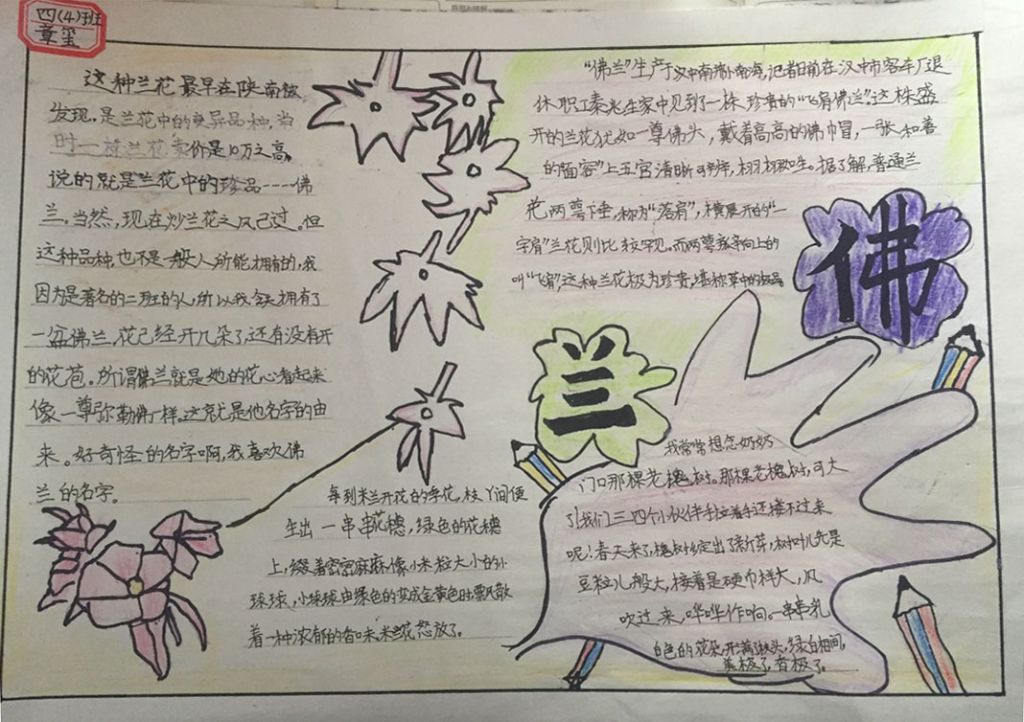 四(4)班
章玺
这种兰花最早在陕南被
发现,是兰花中的变异品种,当
时一株兰花卖价是10万之高,
说的就是兰花中的珍品----佛
兰。当然,现在炒兰花之风已过。但
这种品种,也不是一般人所能拥有的,我
因为是著名的二班的人,所以我家拥有了
一盆佛兰,花已经开几朵了,还有没有开
的花苞。所谓佛兰就是她的花心看起来
像一尊弥勒佛一样。这就是他名字的由
来。好奇怪的名字啊,我喜欢佛
兰的名字。
“佛兰”生产于汉中南郑小南海,记者日前在汉中市客车厂退
休职工秦光生家中见到了一株珍贵的“飞肩佛兰”这株盛
开的兰花犹如一尊佛头,戴着高高的佛巾冒,一张“和善
的面容”上五官清晰可辨,栩栩如生。据了解,普通兰
花两萼下垂,称为“落肩”,横展开的“一
字肩”兰花则比较罕见。而两萼族斜向上的
叫“飞肩”,这种兰花极为珍贵,堪称草中的极品
佛
兰
每到米兰开花的季花,枝丫间便
生出一串串花穗,绿色的花穗
上,缀着密密麻麻像小米粒大小的小
球球,小球球由绿色的变成金黄色时,飘散
着一种浓郁的香味,米兰花怒放了。
我常常想念奶奶
门口那棵老槐树。那棵老槐树,可大
了!我们三四个小伙伴手拉着手还搂不过来
呢!春天来了,槐树绽出了新芽,树叶儿先是
豆粒儿般大,接着是硬币样大,风
吹过来,哗哗作响。一串串乳
白色的花朵,开满了枝头,绿白相间,
美极了,香极了。